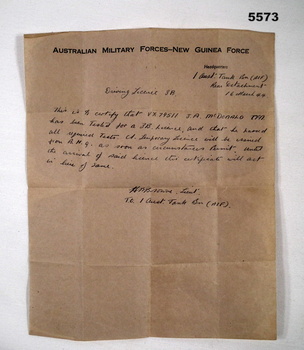 5573
AUSTRALIAN MILITARY FORCES–NEW GUINEA FORCE
Headquarters
1 Aust. Tank Bn (AIF)
Rear Detachment
16 March 44
Driving Licence 3B.
This is to certify that VX79511 J.A McDONALD
has been tested for a 3B. Licence, and that he passed
all required tests. Temporary licence will be
from as soon as circumstances permit. Until
the arrival of said licence this certificate will act
in lieu of same.
Lieut.
TO. 1 Aust Tank Bn (AIF)